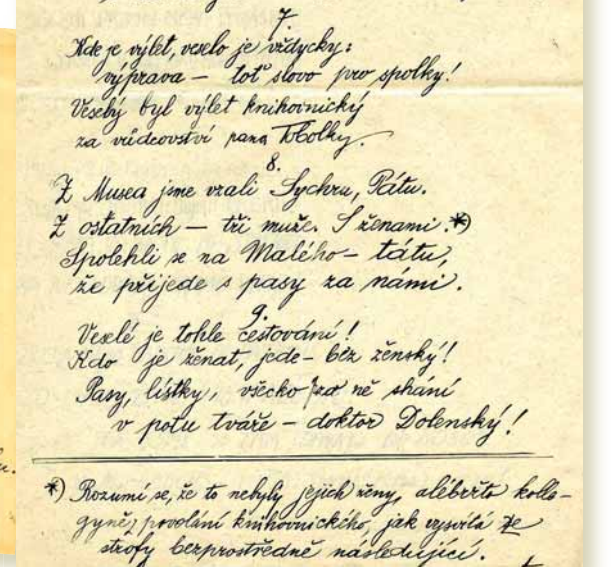 7.
Kde je výlet, veselo je vždycky:
výprava — toť slovo pro spolky!
Veselý byl výlet knihovnický
za vůdcovství pana Tobolky.
8.
Z Musea jsme vzali Sychru, Pátu.
Z ostatních — tři muže. S ženami.*)
Spolehli se na Malého — tátu,
že přijede s pasy za námi.
9.
Veselé je tohle cestování!
Kdo je ženat, jede — bez ženský!
Pasy, lístky, všecko za ně shání
v potu tváře — doktor Dolenský!
*) Rozumí se, že to nebyly jejich ženy, alébržto kolle-
gyně povolání knihovnického, jak vysvítá ze
strofy bezprostředně následující.